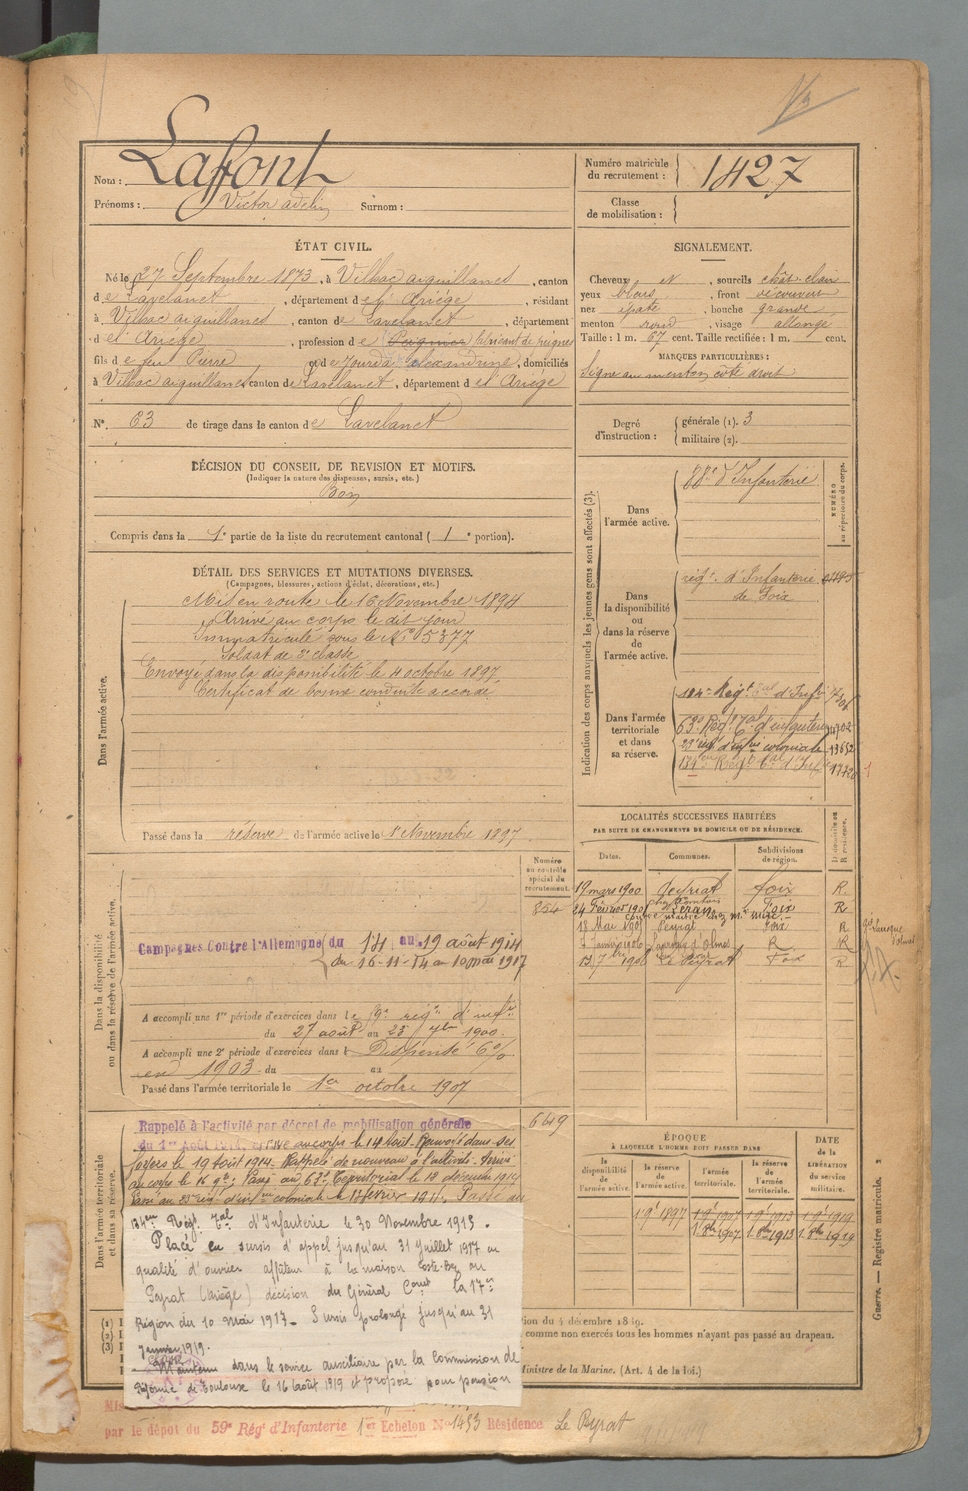 Laffont
Nom :
Prénoms : Victor adelin Surnom :
Numéro matricule du recrutement : 1427
Classe de mobilisation :
ÉTAT CIVIL.
Né le 27 Septembre 1873, à Vilhac aiguillanes, canton
de Lavelanet, département de l'Ariège, résidant
à Vilhac aiguillanes, canton de Lavelanet, département
de l'Ariège, profession de fabricant de peignes
fils de feu Pierre et de Jourda Alexandrine, domiciliés
à Vilhac aiguillanes canton de Lavelanet, département de l'Ariège
N° 63 de tirage dans le canton de Lavelanet
DÉCISION DU CONSEIL DE REVISION ET MOTIFS.
(Indiquer la nature des dispenses, sursis, etc.)
Bon
Compris dans la 1e partie de la liste du recrutement cantonal ( 1e portion).
SIGNALEMENT.
Cheveux N, sourcils chât-clair
yeux bleus, front découvert
nez épaté, bouche grande
menton rond, visage allongé
Taille : 1 m. 67 cent. Taille rectifiée : 1 m. cent.
MARQUES PARTICULIÈRES :
Signe au menton côté droit
Degré d'instruction : générale (1). 3
militaire (2).
DÉTAIL DES SERVICES ET MUTATIONS DIVERSES.
(Campagnes, blessures, actions d'éclat, décorations, etc.)
Dans l'armée active.
Mis en route le 16 Novembre 1894
Arrivé au corps le dit jour
Immatriculé sous le N° 5377
Soldat de 2e classe
Envoyé dans la disponibilité le 4 octobre 1897
Certificat de bonne conduite accordé
Passé dans la réserve de l'armée active le 1er Novembre 1897
Indication des corps auxquels les jeunes gens sont affectés (3).
NUMÉRO au répertoire du corps.
Dans l'armée active.
88e d'Infanterie
Dans la disponibilité ou dans la réserve de l'armée active.
régt. d'Infanterie
de Foix
Dans l'armée territoriale et dans sa réserve.
134e Régt tal d'Infie
63e Régt tal d'infanterie
23e régt d'infie coloniale 13652
134e Régt tal d'Infie
LOCALITÉS SUCCESSIVES HABITÉES
PAR SUITE DE CHANGEMENTS DE DOMICILE OU DE RÉSIDENCE.
Dates. Communes. Subdivisions de région. D domicile ou R résidence.
19 mars 1900 Peyrat Foix R
24 Février 1901 Léran Foix R
18 Mai Peyrat Foix R
7 Janvier 1906 Laroque d'Olmes R
13 7bre 1906 Le Peyrat Foix R
Dans la disponibilité ou dans la réserve de l'armée active.
Numéro au contrôle spécial du recrutement.
854
Campagnes Contre l'Allemagne du 14 au 19 août 1914
du 16-11-14 au 10 mai 1917
A accompli une 1re période d'exercices dans le 59e régt d'infie
du 27 août au 23 7bre 1900.
A accompli une 2e période d'exercices dans l Dispensé 6%
en 1903 du au
Passé dans l'armée territoriale le 1er octobre 1907
Dans l'armée territoriale et dans sa réserve.
649
Rappelé à l'activité par décret de mobilisation générale
du 1er Août 1914, arrivé au corps le 14 Août. Renvoyé dans ses
foyers le 19 Août 1914. Rappelé de nouveau à l'activité. Arrivé
au corps le 16 9bre; Passé au 63e territorial le 12 décembre 1914
Passé au 23e régt d'infie coloniale le février 191. Passé au
134eme Régt. tal d'Infanterie le 30 Novembre 1915.
Placé en sursis d'appel jusqu'au 31 Juillet 1917 en
qualité d'ouvrier affûteur à la maison Coste-Bey au
Peyrat (Ariège) décision du Général Comt la 17e
Région du 10 mai 1917. Sursis prolongé jusqu'au 31
Janvier 1919.
Maintenu dans le service auxiliaire par la Commission de
Réforme de Toulouse le 16 août 1919 et proposé pour pension
ÉPOQUE
À LAQUELLE L'HOMME DOIT PASSER DANS
la disponibilité de l'armée active. la réserve de l'armée active. l'armée territoriale. la réserve de l'armée territoriale.
DATE DE LA LIBÉRATION du service militaire.
1 9bre 1897 1 9bre 1907 1 9bre 1913 1 9bre 1919
1 8bre 1907 1 8bre 1913 1 8bre 1919
(1)
(2)
(3)
comme non exercés tous les hommes n'ayant pas passé au drapeau.
Ministre de la Marine. (Art. 4 de la loi.)
Guerre. — Registre matricule.
par le dépôt du 59e Régt d'Infanterie 1er Echelon N° 1493 Résidence Le Peyrat